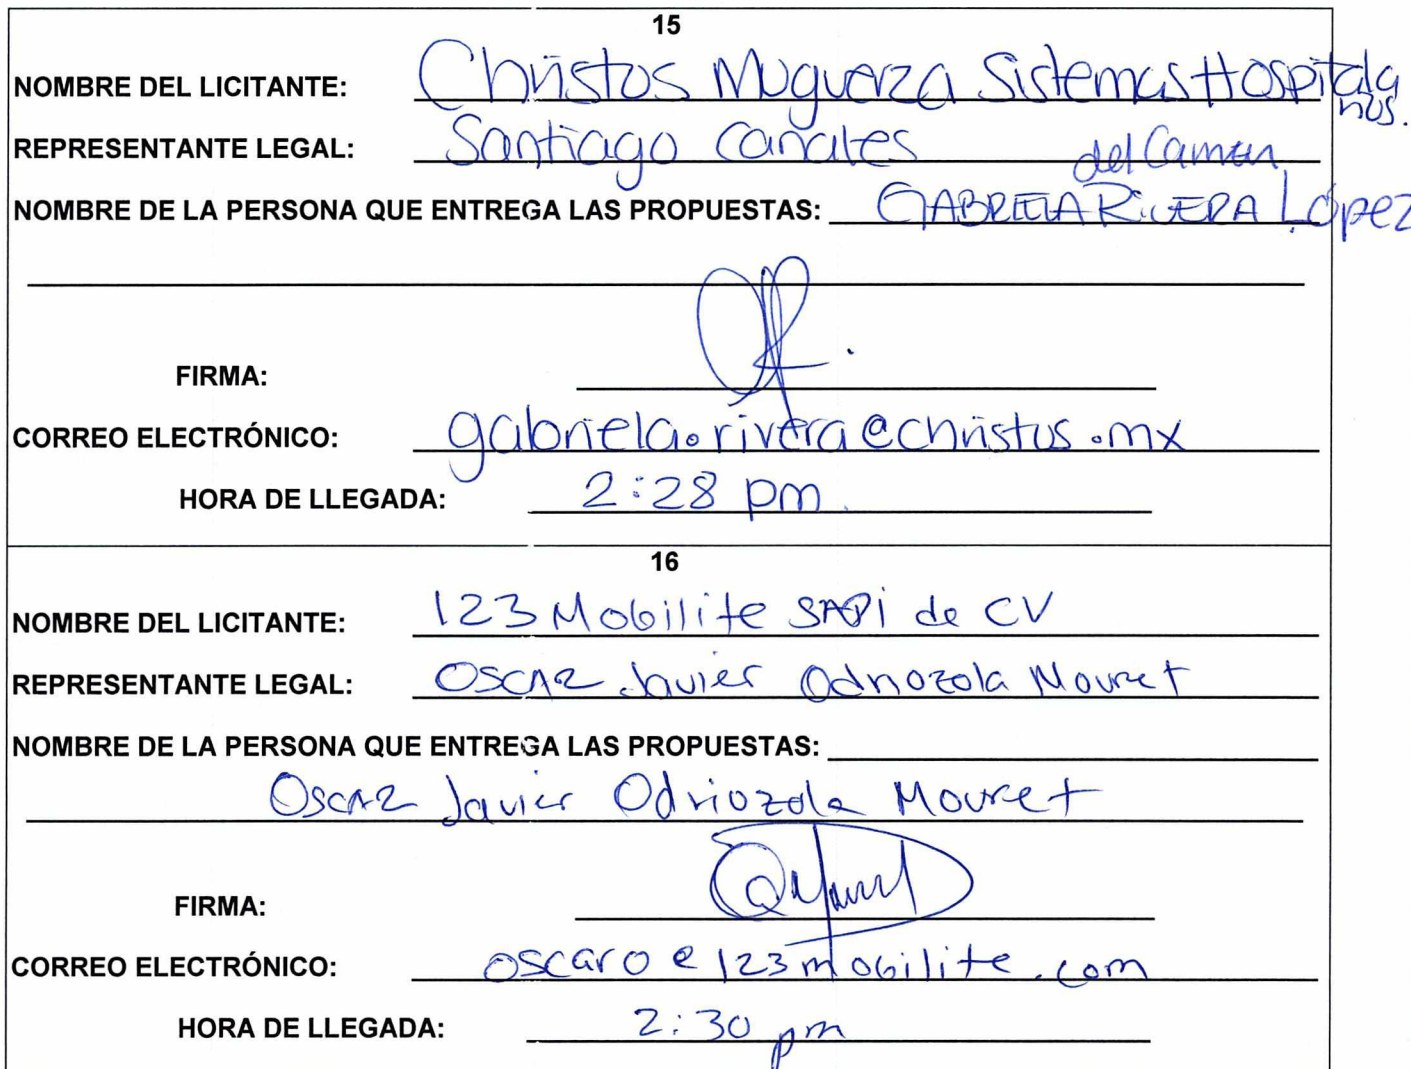 15
NOMBRE DEL LICITANTE: Christus Muguerza Sistemas Hospitala
rios.
REPRESENTANTE LEGAL: Santiago Canales
del Carmen
NOMBRE DE LA PERSONA QUE ENTREGA LAS PROPUESTAS: GABRIELA RIVERA López
FIRMA:
CORREO ELECTRÓNICO: gabriela.rivera@christus.mx
HORA DE LLEGADA: 2:28 pm.
16
NOMBRE DEL LICITANTE: 123 Mobilite SAPI de CV
REPRESENTANTE LEGAL: OSCAR Javier Odriozola Mouret
NOMBRE DE LA PERSONA QUE ENTREGA LAS PROPUESTAS:
OSCAR Javier Odriozola Mouret
FIRMA:
CORREO ELECTRÓNICO: oscaro@123mobilite.com
HORA DE LLEGADA: 2:30 pm